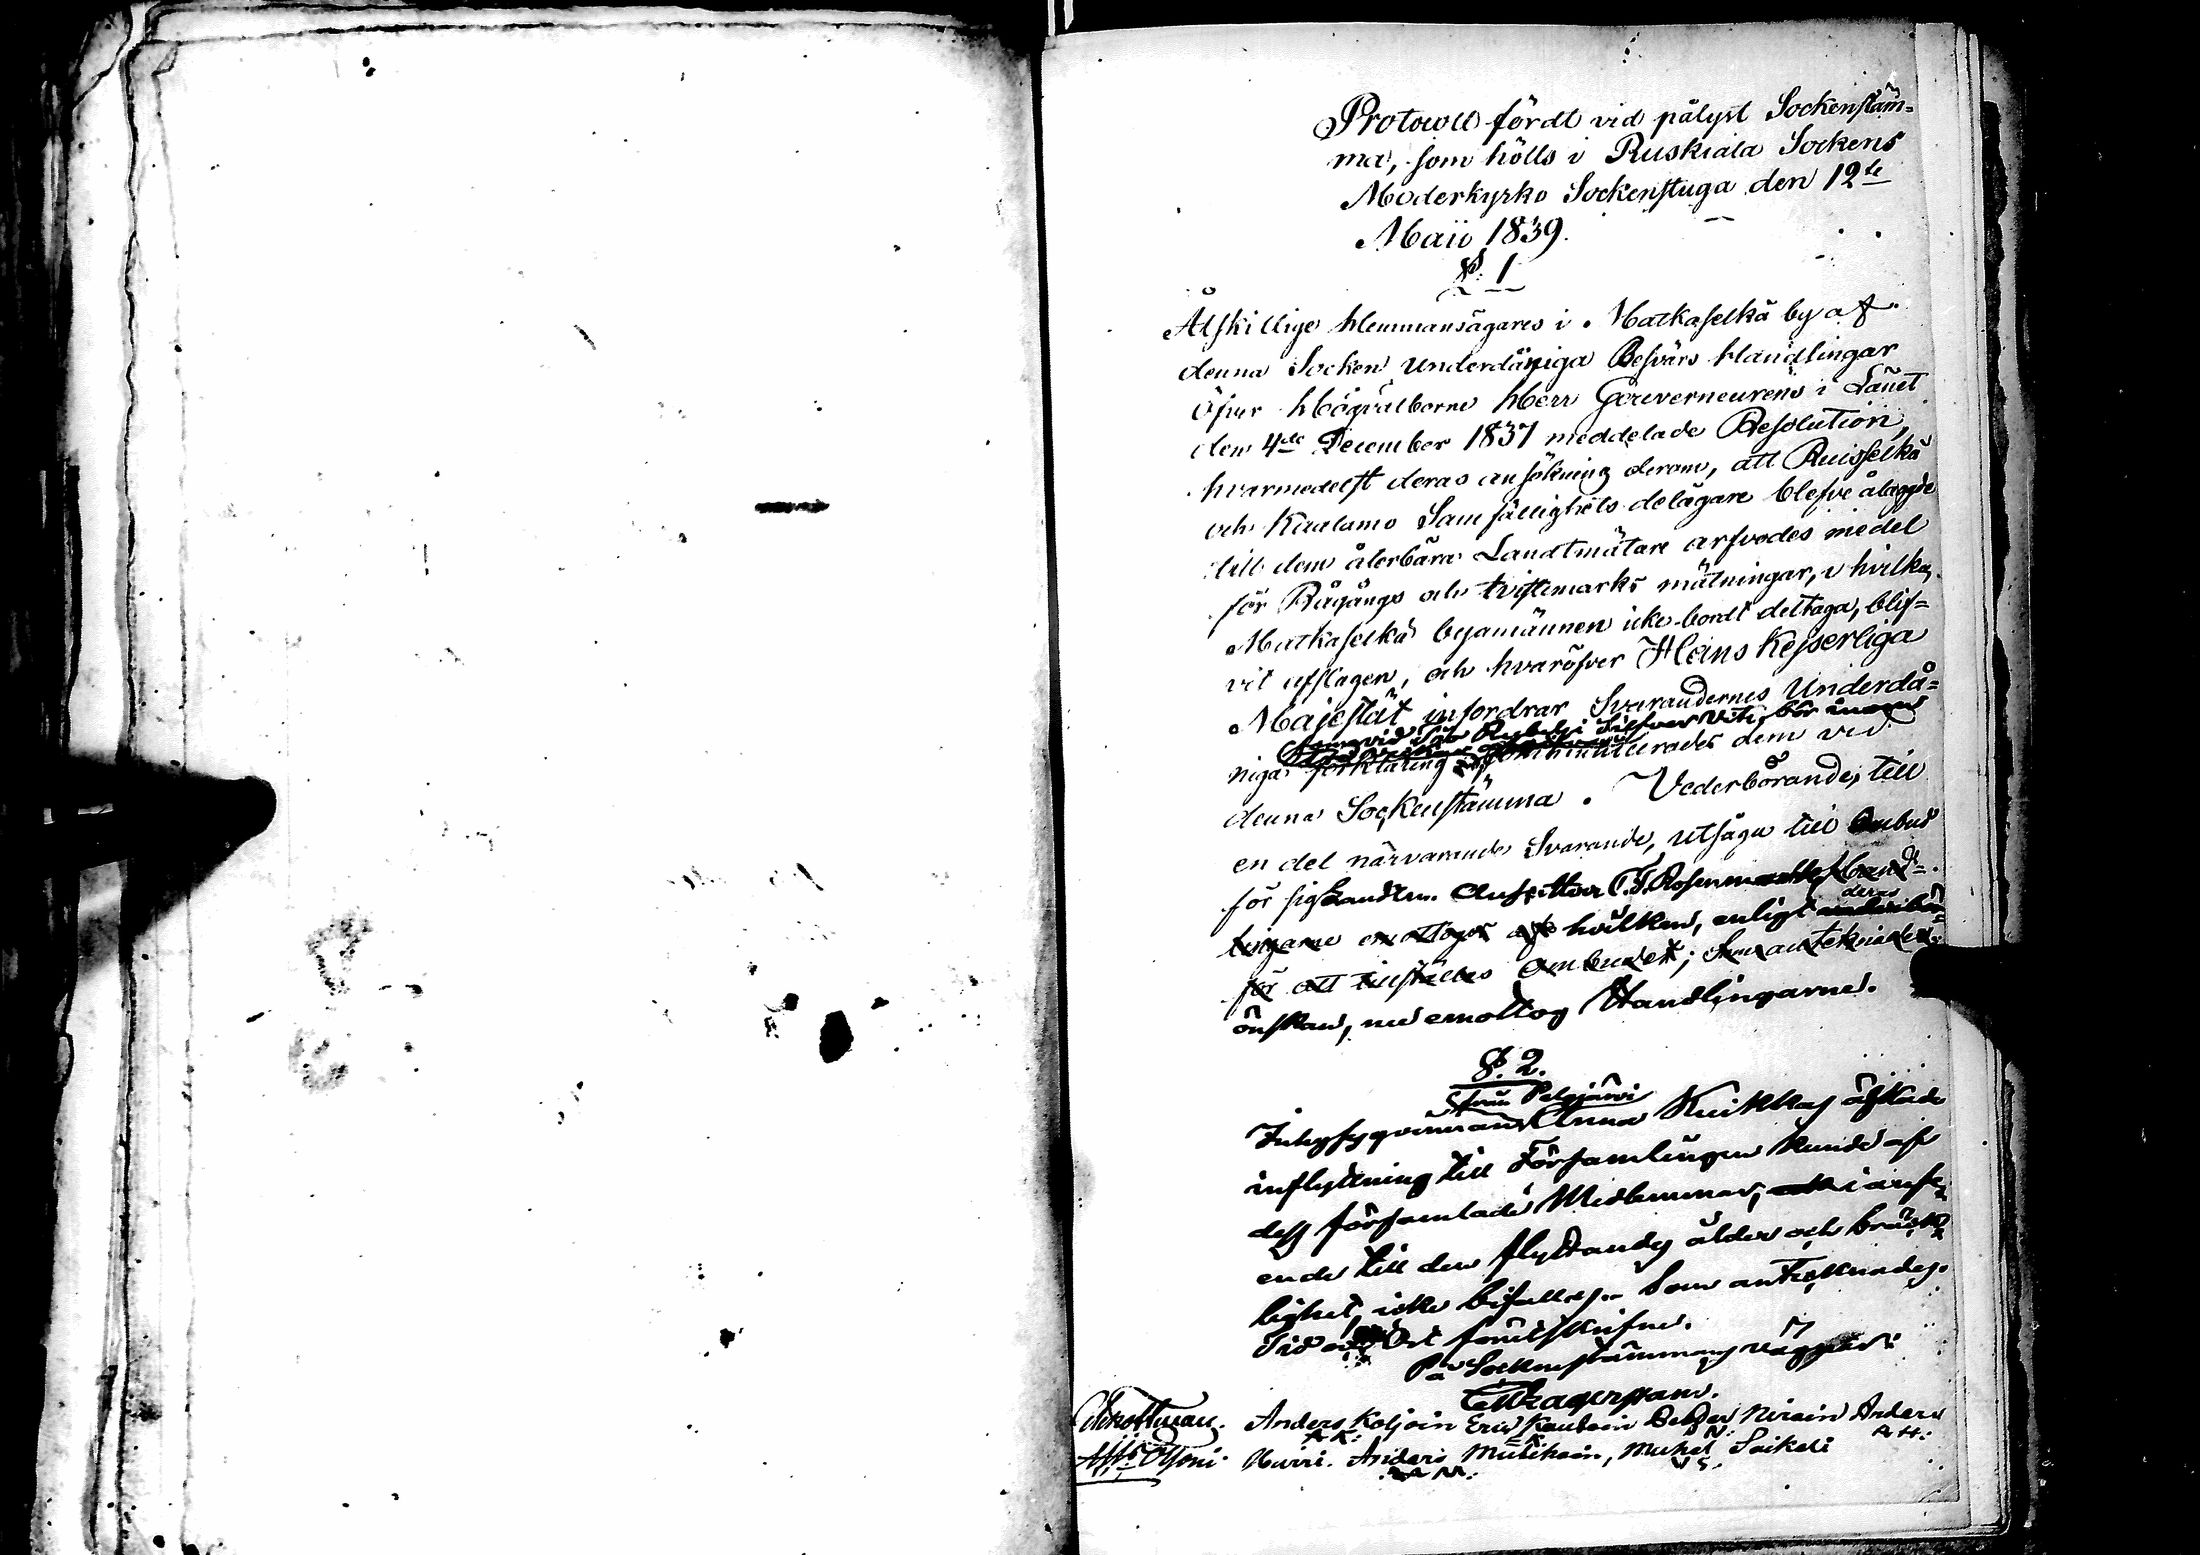 Protocoll fördt vid pålyst Sockenstäm=
ma, som hölls i Ruskiala Sockens
Moderkyrko Sockenstuga den 12te
Maii 1839.
§. 1
Åtskillige Hemmansägares i Matkaselkä by af
denna Socken underdåniga Besvärs Handlingar
öfver Högvälborne Herr Gouverneurens i Länet
den 4de December 1837 meddelade Resolution,
hvarmedelst deras ansökning derom, att Ruisselkä
och Kaalamo Samfällighets delägare blefve ålagde
till dem återbära Landtmätare arfvodes medel
för Rågångs och tvistemarks mätningar, i hvilka
Matkaselkä byamännen icke bordt deltaga, blif=
vit afslagen, och hvaröfver Hans Kejserliga
Majestät infordrar Svarandernes Underdå=
niga förklaring communicerades dem vid
denna Sockenstämma. Vederbörande, till
en del närvarande Svarande, utsågo till Ombud
för sig Handlen. T.F. Rosen Hand=
lingarne emottogos af hvilken, enligt deras
för att tillställas Ombudet; Som antecknades.
önskan, nu emottog Handlingarne.
§. 2.
från Pelgjärvi
Inhysesqvinnan Anna Kuikkas äskade
inflyttning till Församlingen kunde af
dess församlade Medlemmar, i anse=
ende till den flyttandes ålder och bräck=
lighet, icke bifallas. Som antecknades.
Tid och Ort förutskrifne.
På Sockenstämmans vägnar:
Anders Koljoin Eric Kautoin Petter Hirvoin Anders
A.K. E.K. P.H. A.H.
Hurri. Anders Mutikain, Michel Saikoli
A.M. M.S.